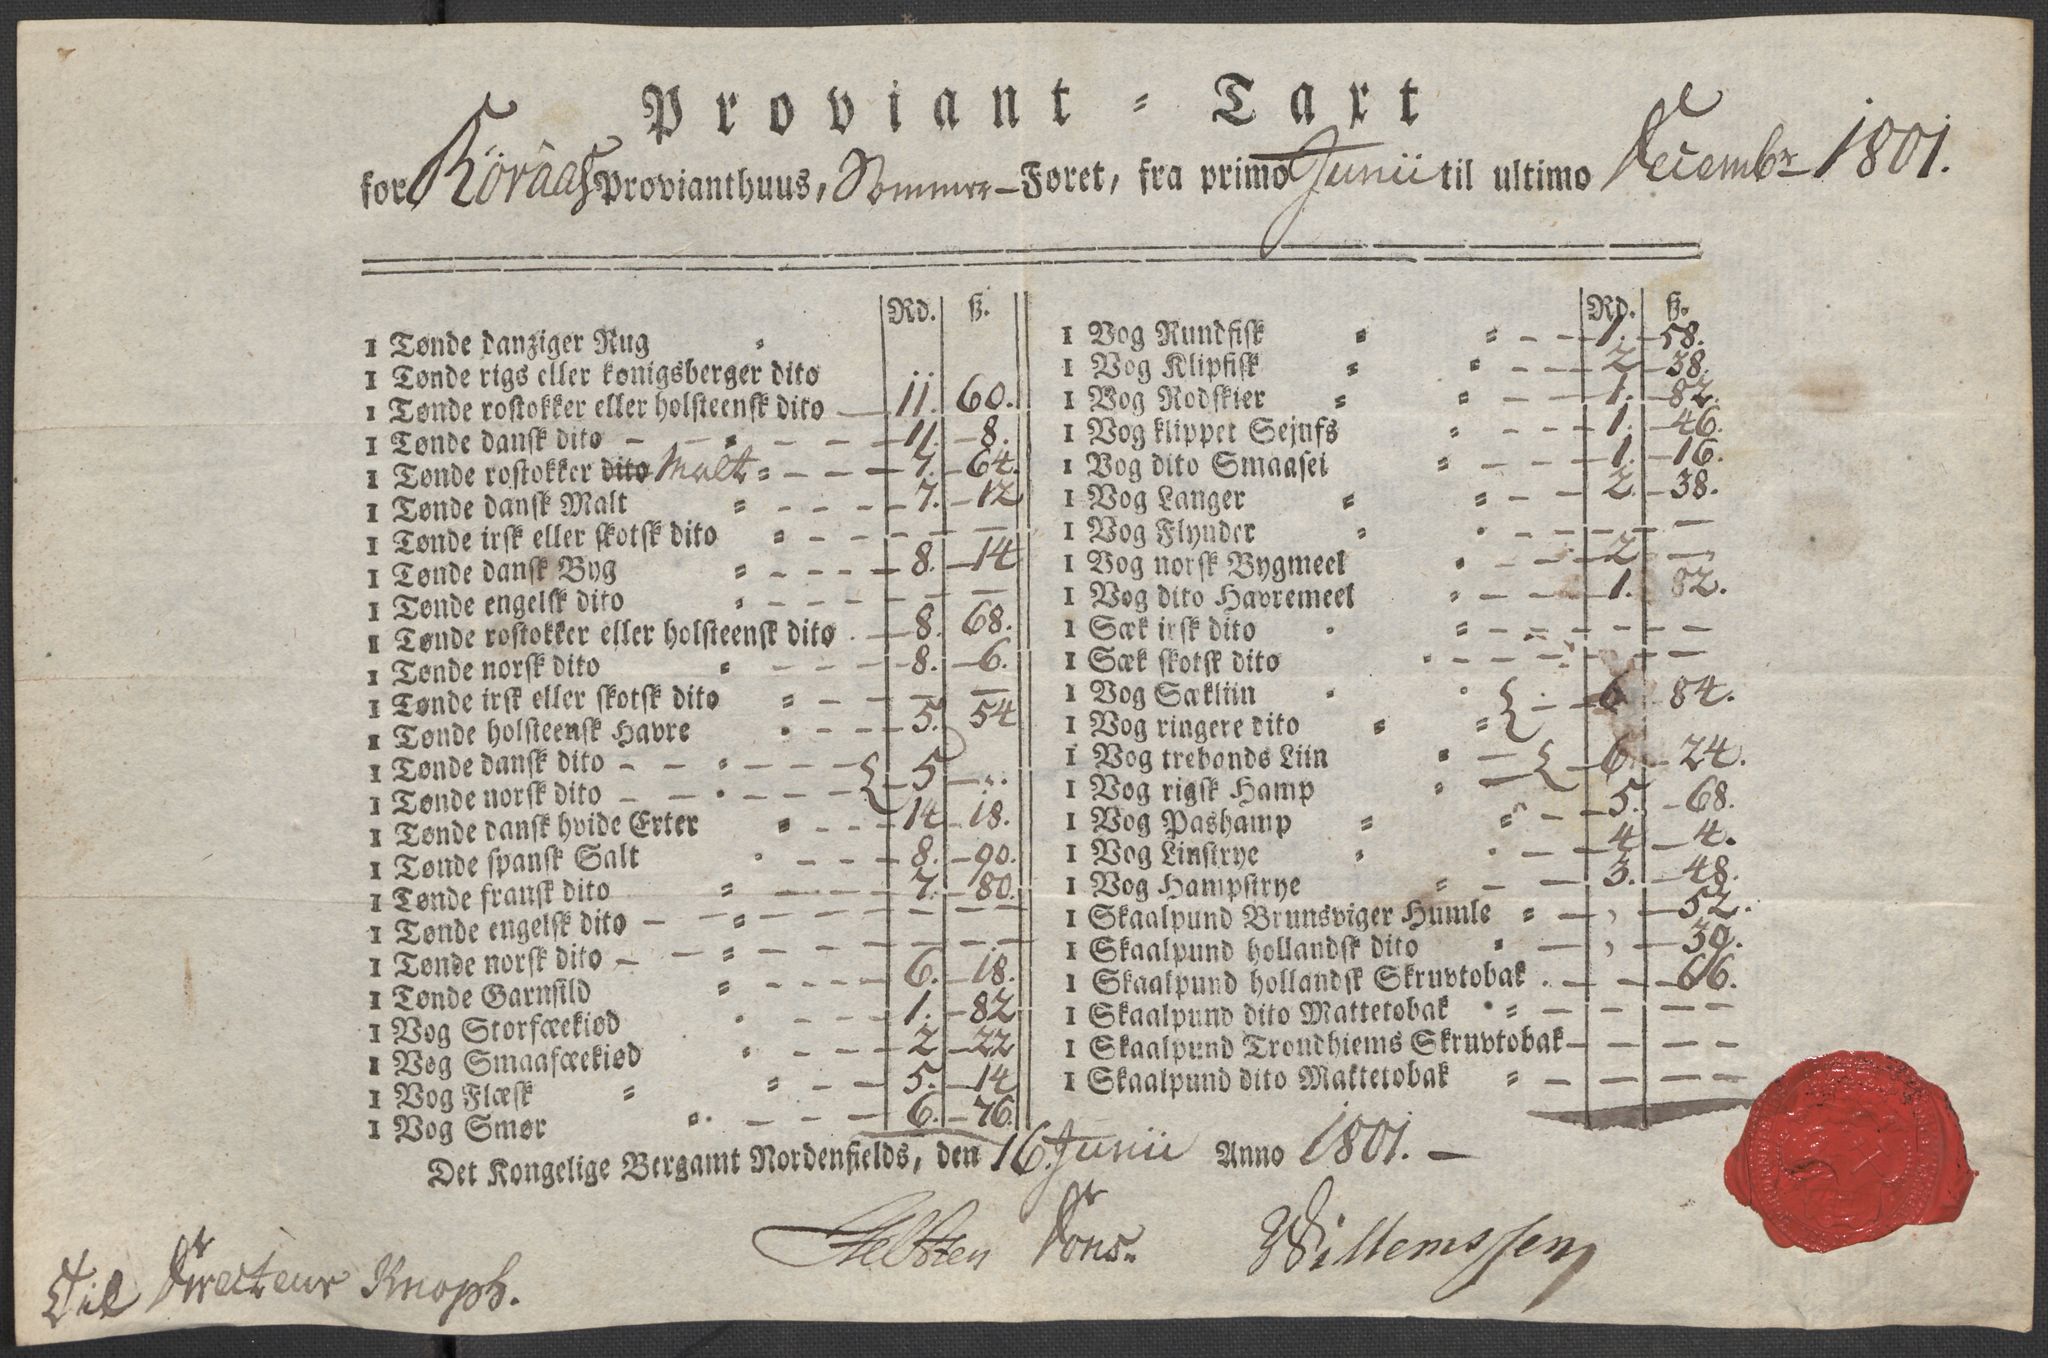 Proviant - Taxt
for Röraas Provianthuus, Sommer-Føret, fra primo Junii til ultimo Decembr 1801.
Rd. ß.
1 Tønde danziger Rug
1 Tønde rigs eller kønigsberger dito
1 Tønde rostokker eller holsteensk dito — 11. 60.
1 Tønde dansk dito — — — — — 11. — 8.
1 Tønde rostokker dito Malt — — — 7. — 64.
1 Tønde dansk Malt — — — 7. — 12
1 Tønde irsk eller skotsk dito — — — — —
1 Tønde dansk Byg — — — 8. — 14
1 Tønde engelsk dito — — — — —
1 Tønde rostokker eller holsteensk dito — 8. 68.
1 Tønde norsk dito — — — 8. — 6.
1 Tønde irsk eller skotsk dito — — — —
1 Tønde holsteensk Havre — — — 5. 54
1 Tønde dansk dito — — — — — {
1 Tønde norsk dito — — — — — { 5 —
1 Tønde dansk hvide Erter — — — 14 — 18.
1 Tønde spansk Salt — — — 8. — 90.
1 Tønde fransk dito — — — 7. — 80.
1 Tønde engelsk dito — — — — — —
1 Tønde norsk dito — — — — — —
1 Tønde Garnsild — — — 6. — 18.
1 Vog Storfæekiød — — — 1. — 82
1 Vog Smaafæekiød — — — 2 — 22
1 Vog Flæsk — — — 5. — 14
1 Vog Smør — — — 6. — 76.
Rd. ß.
1 Vog Rundfisk — — 1. — 58.
1 Vog Klipfisk — — 2 — 38.
1 Vog Rodskier — — 1. — 82.
1 Vog klippet Sejufs — — 1. — 46.
1 Vog dito Smaasei — — 1. — 16.
1 Vog Langer — — 2. — 38.
1 Vog Flynder — — — —
1 Vog norsk Bygmeel — — 2 —
1 Vog dito Havremeel — — 1. 82.
1 Sæk irsk dito — — — — —
1 Sæk skotsk dito — — — — —
1 Vog Sækliin { — 6 84.
1 Vog ringere dito {
1 Vog trebands Liin — { 6. — 24.
1 Vog rigsk Hamp — {
1 Vog Pashamp — — 5. — 68.
1 Vog Linstrye — — 4 — 4.
1 Vog Hampstrye — — 3. — 48.
1 Skaalpund Brunsviger Humle — , — 52.
1 Skaalpund hollandsk dito — , — 39.
1 Skaalpund hollandsk Skruvtobak — — 66.
1 Skaalpund dito Mattetobak — — — —
1 Skaalpund Trondhiems Skruvtobak — — — —
1 Skaalpund dito Mattetobak — — — — —
Det Kongelige Bergamt Nordenfields, den 16. Junii Anno 1801. —
Dons. Willemssen
Til Directeur Knoph.